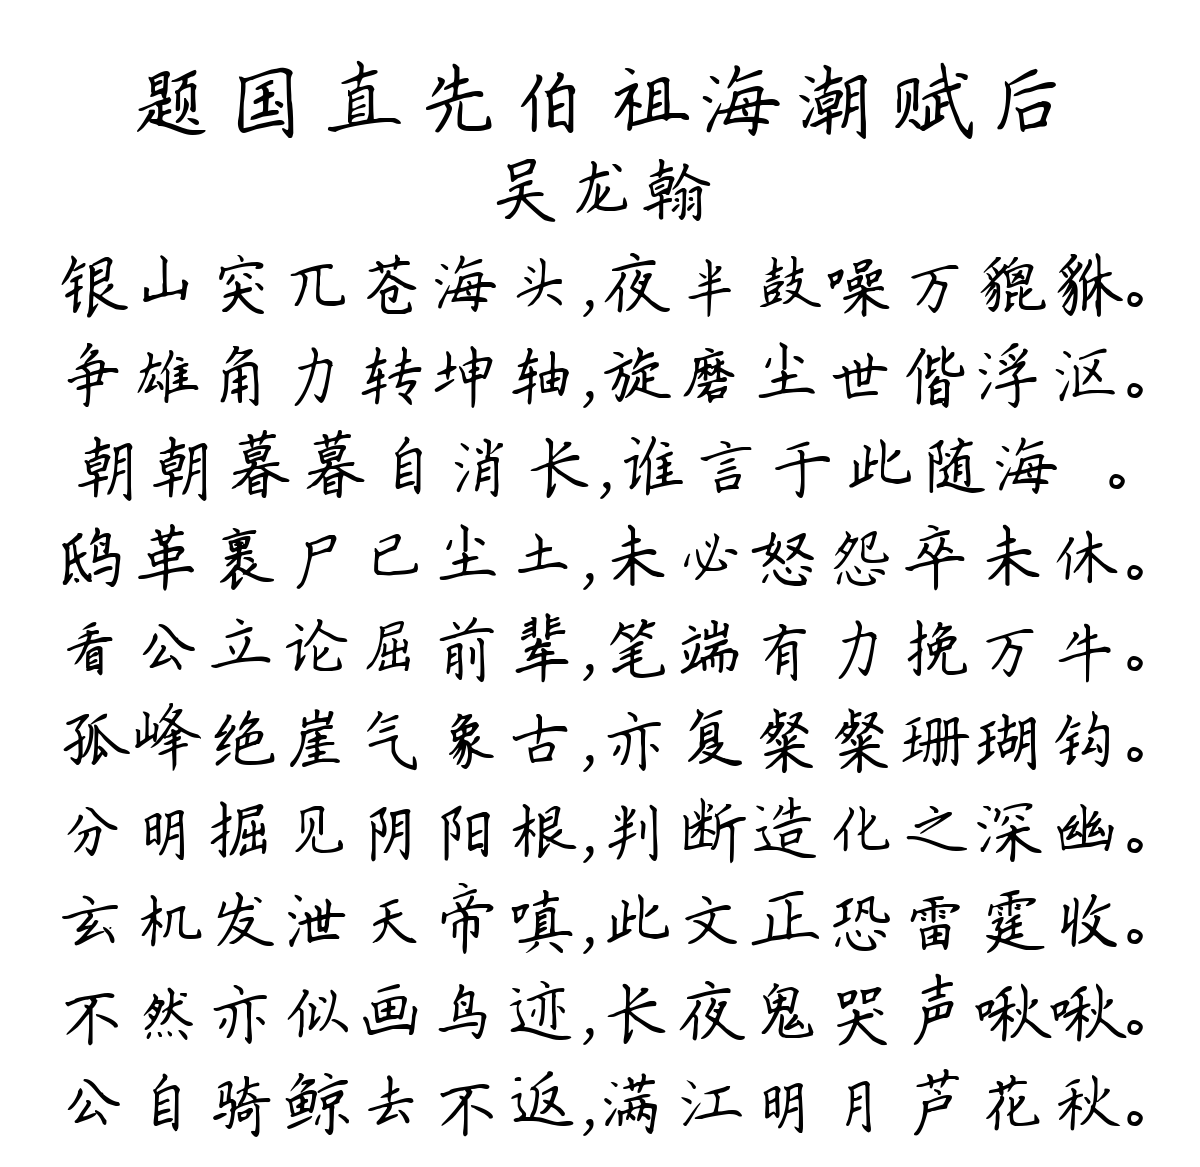 题国直先伯祖海潮赋后
吴龙翰
银山突兀苍海头,夜半鼓噪万貔貅。
争雄角力转坤轴,旋磨尘世偕浮沤。
朝朝暮暮自消长,谁言于此随海 。
鸱革裹尸已尘土,未必怒怨卒未休。
看公立论屈前辈,笔端有力挽万牛。
孤峰绝崖气象古,亦复粲粲珊瑚钩。
分明掘见阴阳根,判断造化之深幽。
玄机发泄天帝嗔,此文正恐雷霆收。
不然亦似画鸟迹,长夜鬼哭声啾啾。
公自骑鲸去不返,满江明月芦花秋。